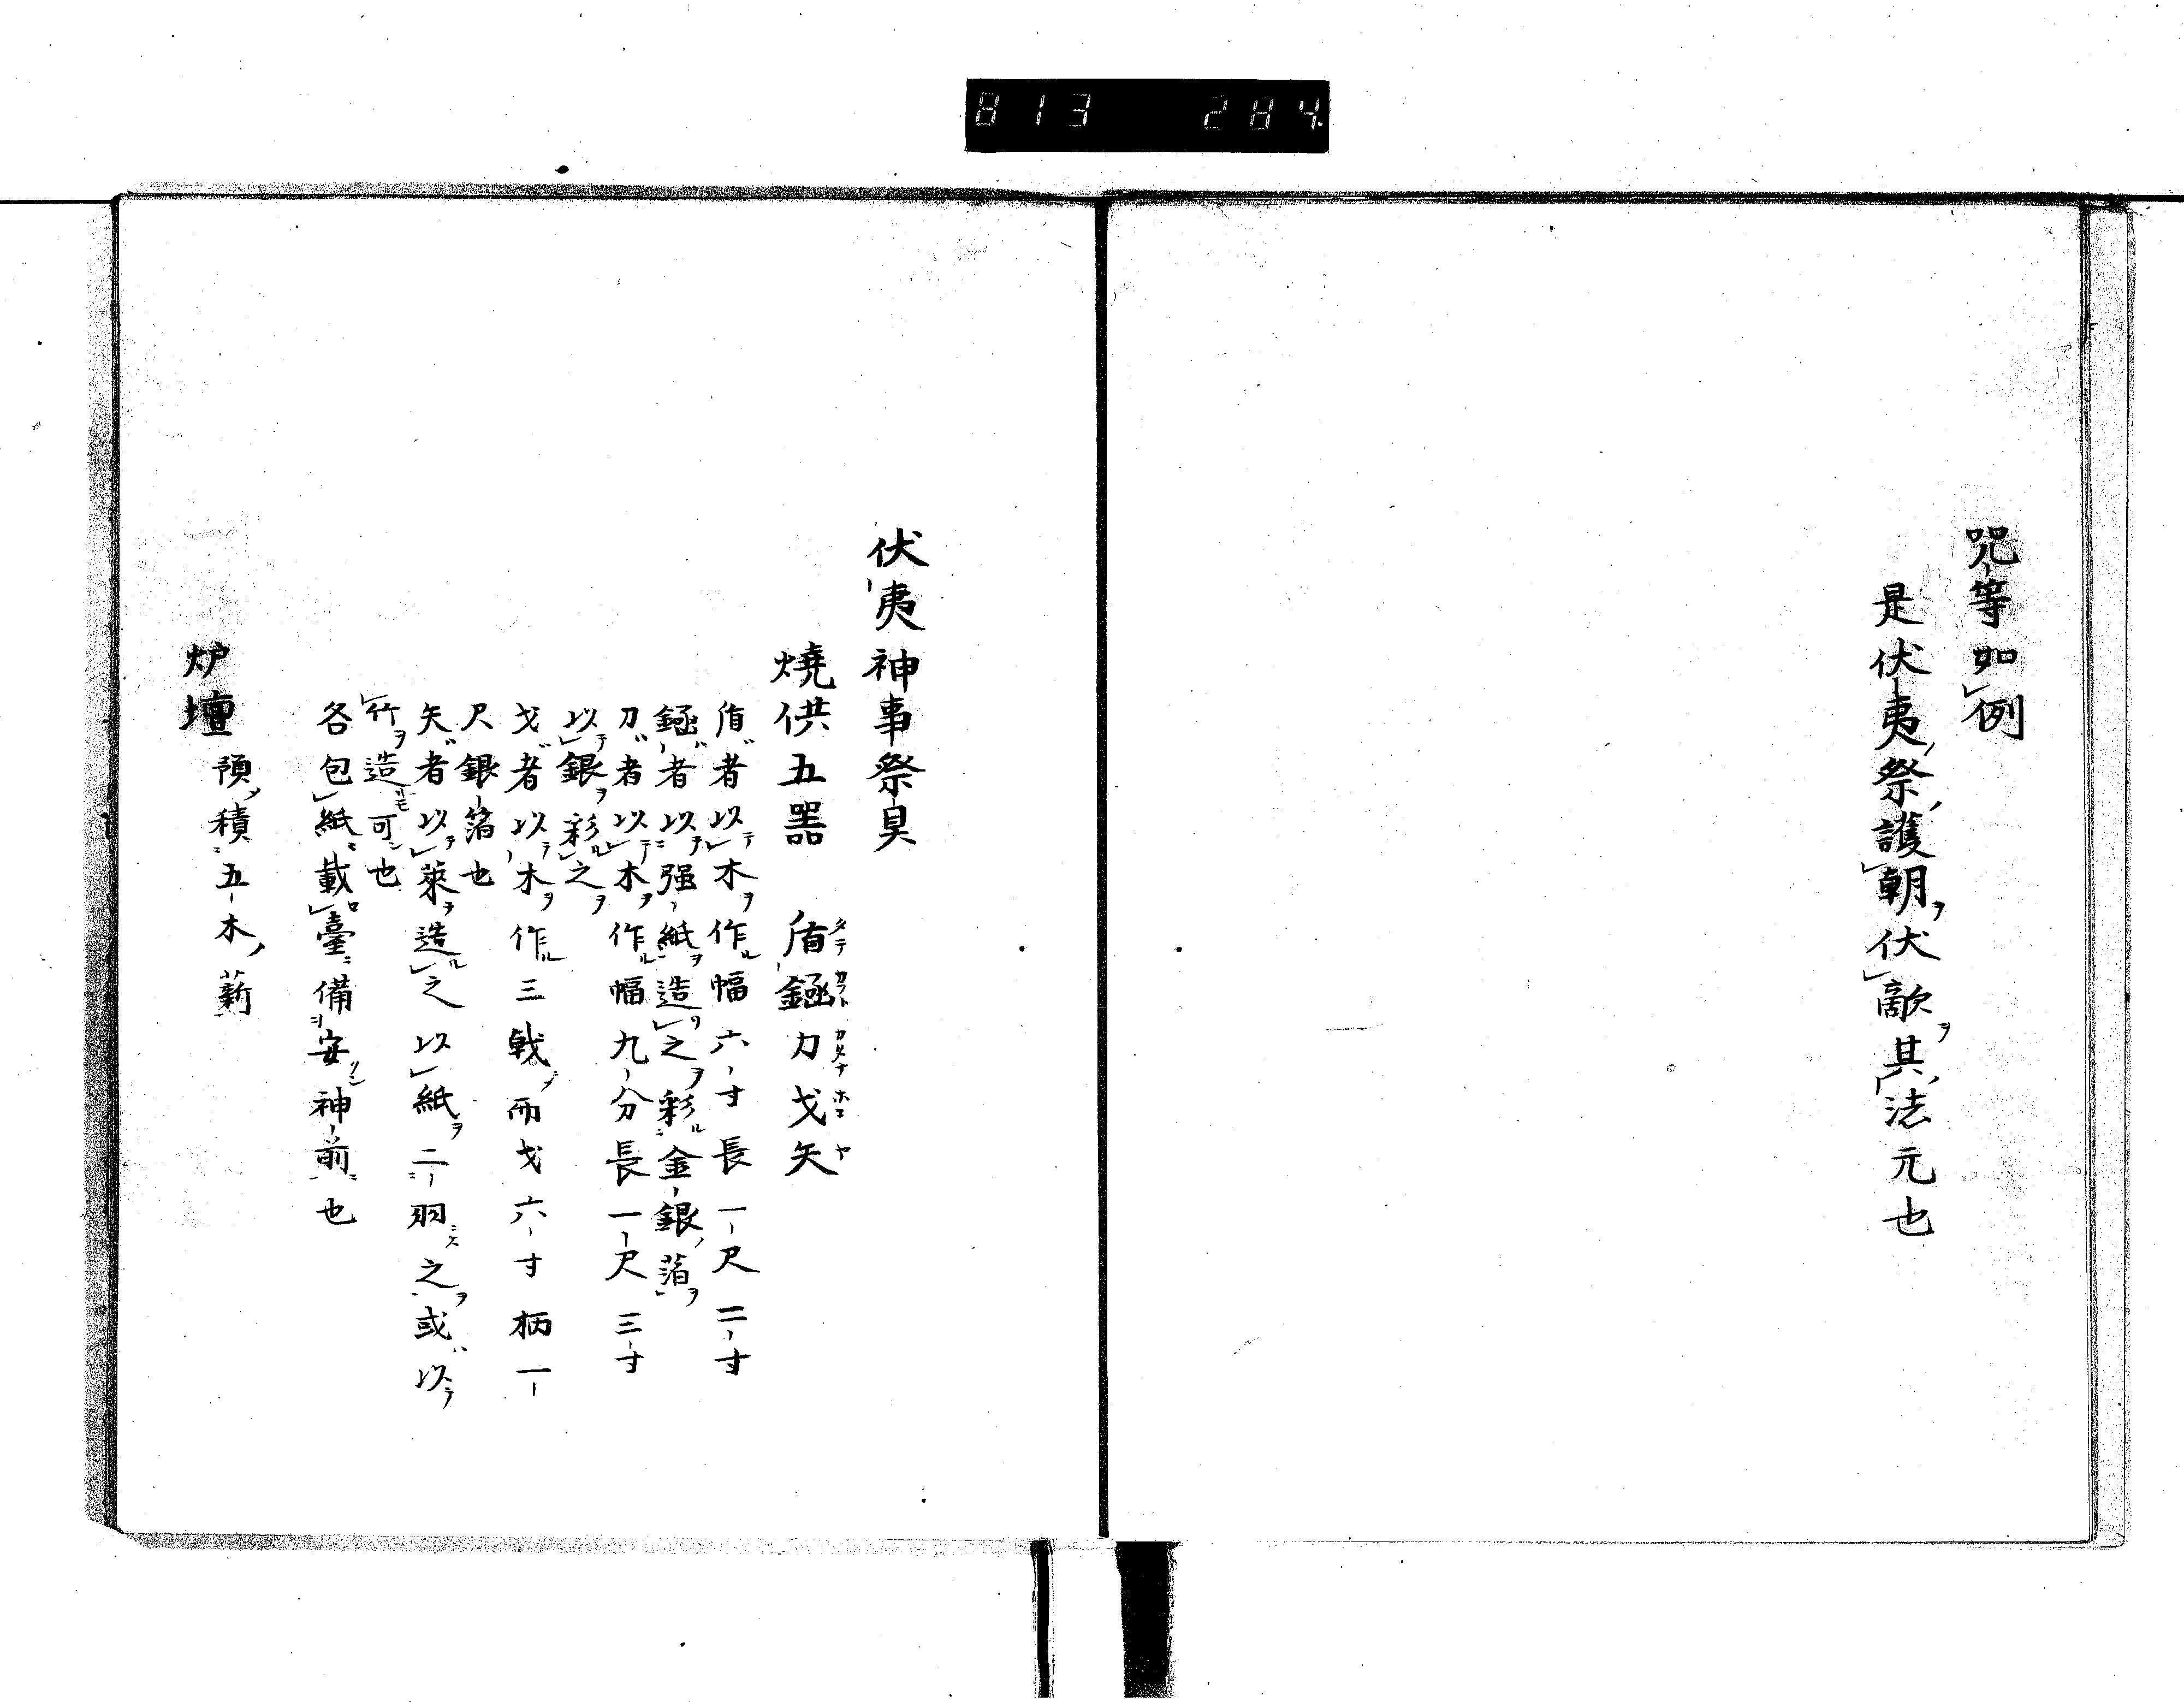 813 284
咒等如例
是伏夷祭護朝伏敵其法元也
伏夷神事祭具
燒供五器 盾鋺刀戈矢
盾者以木作幅六寸長一尺二寸
者以强紙造之彩金銀箔
刀者以木作幅九分長一尺三寸
以銀彩之
戈者以木作三戟而戈六寸柄一
尺銀箔也
矢者以萊造之以紙二羽之或以
竹造可也
各包紙載臺備安神前也
炉壇 預積五木薪